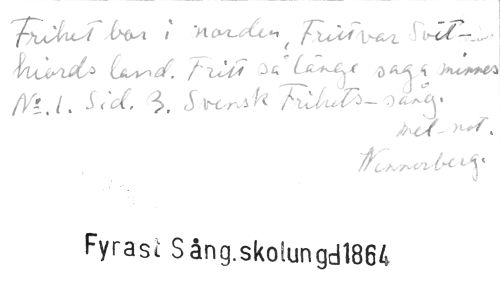 Frihet bor i norden, Fritt var Svit-
hiords land. Fritt så länge saga minnes
No. 1. Sid. 3. Svensk Frihets-sång.
mel-not.
Wennerberg.
Fyrast Sång.skolungd1864